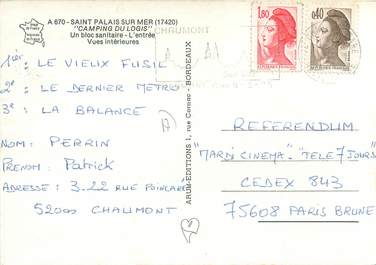 A 670 - SAINT PALAIS SUR MER (17420)
"CAMPING DU LOGIS"
Un bloc sanitaire - L'entrée
Vues intérieures
CHAUMONT
1,80
0,40
1er: LE VIEUX FUSIL
2e: LE DERNIER METRO
3e: LA BALANCE
NOM: PERRIN
PRENOM: Patrick
ADRESSE: 3.22 RUE POINCARÉ
52000 CHAUMONT
ARUM-EDITIONS 1, rue Cornac - BORDEAUX
REFERENDUM
"MARDI CINEMA"-"TELE 7 JOURS"
CEDEX 843
75608 PARIS BRUNE